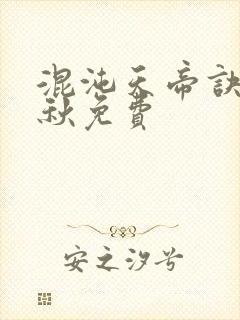 混沌天帝訣
秋免費
安之汐兮